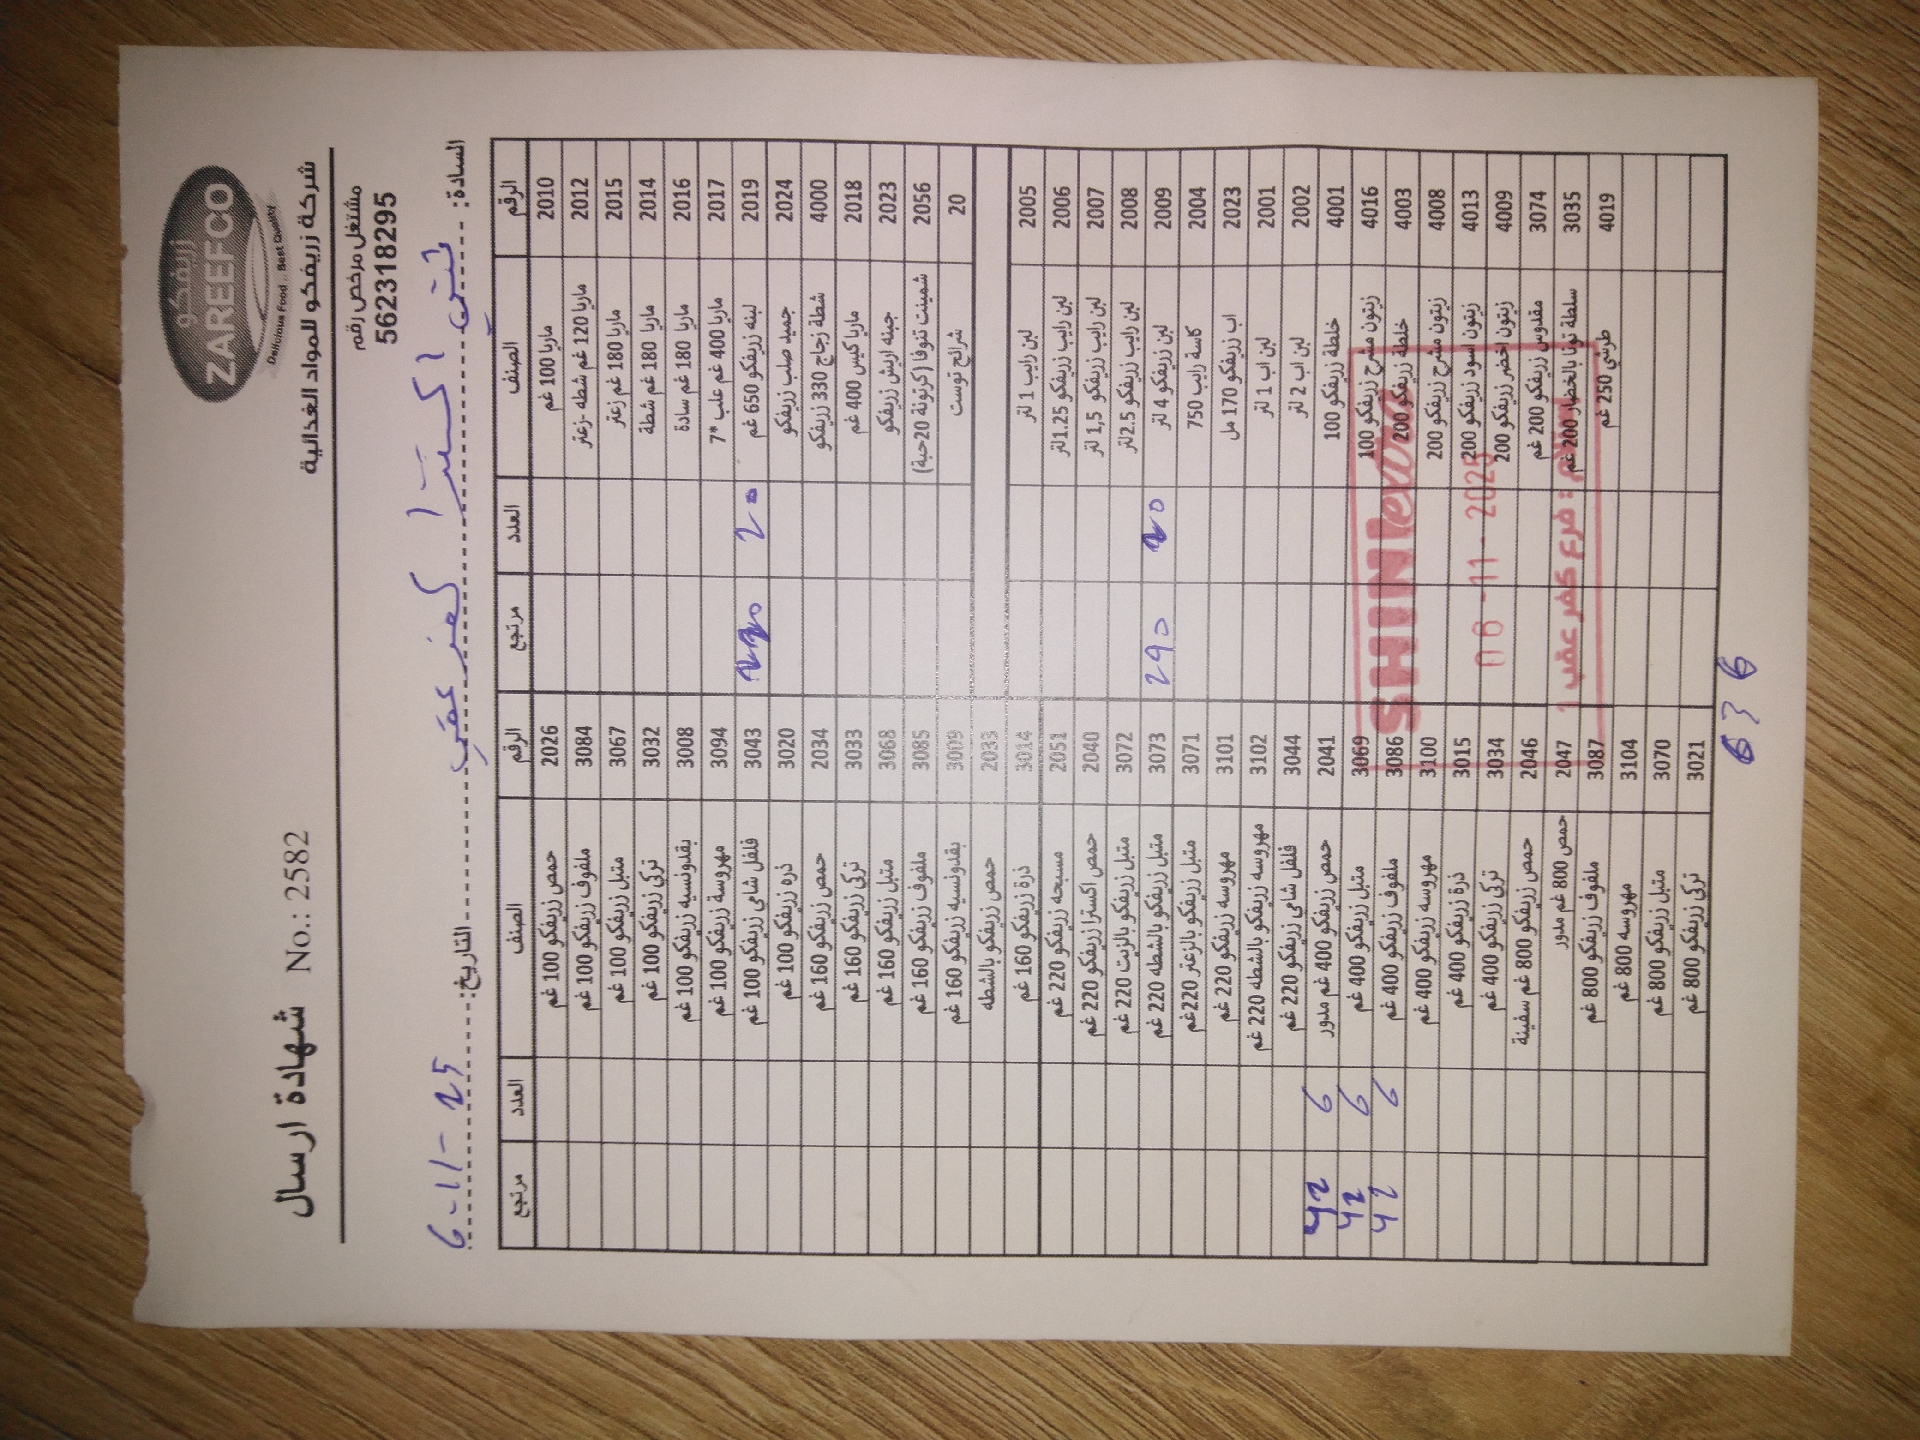 زريفكو
ZAREEFCO
Delicious Food .. Best Quality
شركة زريفكو للمواد الغذائية
شهادة ارسال No.: 2582
مشتغل مرخص رقم
562318295
السادة: اكسترا كفر عقب التاريخ: 6-11-25
الرقم الصنف العدد مرتجع الرقم الصنف العدد مرتجع
2010 ماريا 100 غم 2026 حمص زريفكو 100 غم
2012 ماريا 120 غم شطه -زعتر 3084 ملفوف زريفكو 100 غم
2015 ماريا 180 غم زعتر 3067 متبل زريفكو 100 غم
2014 ماريا 180 غم شطة 3032 تركي زريفكو 100 غم
2016 ماريا 180 غم سادة 3008 بقدونسيه زريفكو 100 غم
2017 ماريا 400 غم علب *7 3094 مهروسة زريفكو 100 غم
2019 لبنه زريفكو 650 غم 20 3043 فلفل شامي زريفكو 100 غم
2024 جميد صلب زريفكو 3020 ذره زريفكو 100 غم
4000 شطة زجاج 330 زريفكو 2034 حمص زريفكو 160 غم
2018 ماريا كيس 400 غم 3033 تركي زريفكو 160 غم
2023 جبنه اريش زريفكو 3068 متبل زريفكو 160 غم
2056 شمينت تنوفا (كرتونة 20حبة) 3085 ملفوف زريفكو 160 غم
20 شرائح توست 3009 بقدونسيه زريفكو 160 غم
2033 حمص زريفكو بالشطه
2005 لبن رايب 1 لتر 3014 ذرة زريفكو 160 غم
2006 لبن رايب زريفكو 1.25لتر 2051 مسبحه زريفكو 220 غم
2007 لبن رايب زريفكو 1,5 لتر 2040 حمص اكسترا زريفكو 220 غم
2008 لبن رايب زريفكو 2.5لتر 3072 متبل زريفكو بالزيت 220 غم
2009 لبن زريفكو 4 لتر 290 3073 متبل زريفكو بالشطه 220 غم
2004 كاسة رايب 750 3071 متبل زريفكو بالزعتر 220غم
2023 اب زريفكو 170 مل 3101 مهروسه زريفكو 220 غم
2001 لبن اب 1 لتر 3102 مهروسه زريفكو بالشطه 220 غم
2002 لبن اب 2 لتر 3044 فلفل شامي زريفكو 220 غم
4001 خلطة زريفكو 100 2041 حمص زريفكو 400 غم مدور 6 42
4016 زيتون مشرح زريفكو 100 3069 متبل زريفكو 400 غم 6 42
4003 خلطة زريفكو 200 3086 ملفوف زريفكو 400 غم 6 42
4008 زيتون مشرح زريفكو 200 3100 مهروسه زريفكو 400 غم
4013 زيتون اسود زريفكو 200 3015 ذرة زريفكو 400 غم
4009 زيتون اخضر زريفكو 200 3034 تركي زريفكو 400 غم
3074 مقدوس زريفكو 200 غم 2046 حمص زريفكو 800 غم سفينة
3035 سلطة تونا بالخضار 200 غم 2047 حمص 800 غم مدور
4019 طرشي 250 غم 3087 ملفوف زريفكو 800 غم
3104 مهروسه 800 غم
3070 متبل زريفكو 800 غم
3021 تركي زريفكو 800 غم
SHINI extra
06 -11- 2025
فرع كفر عقب 1
636